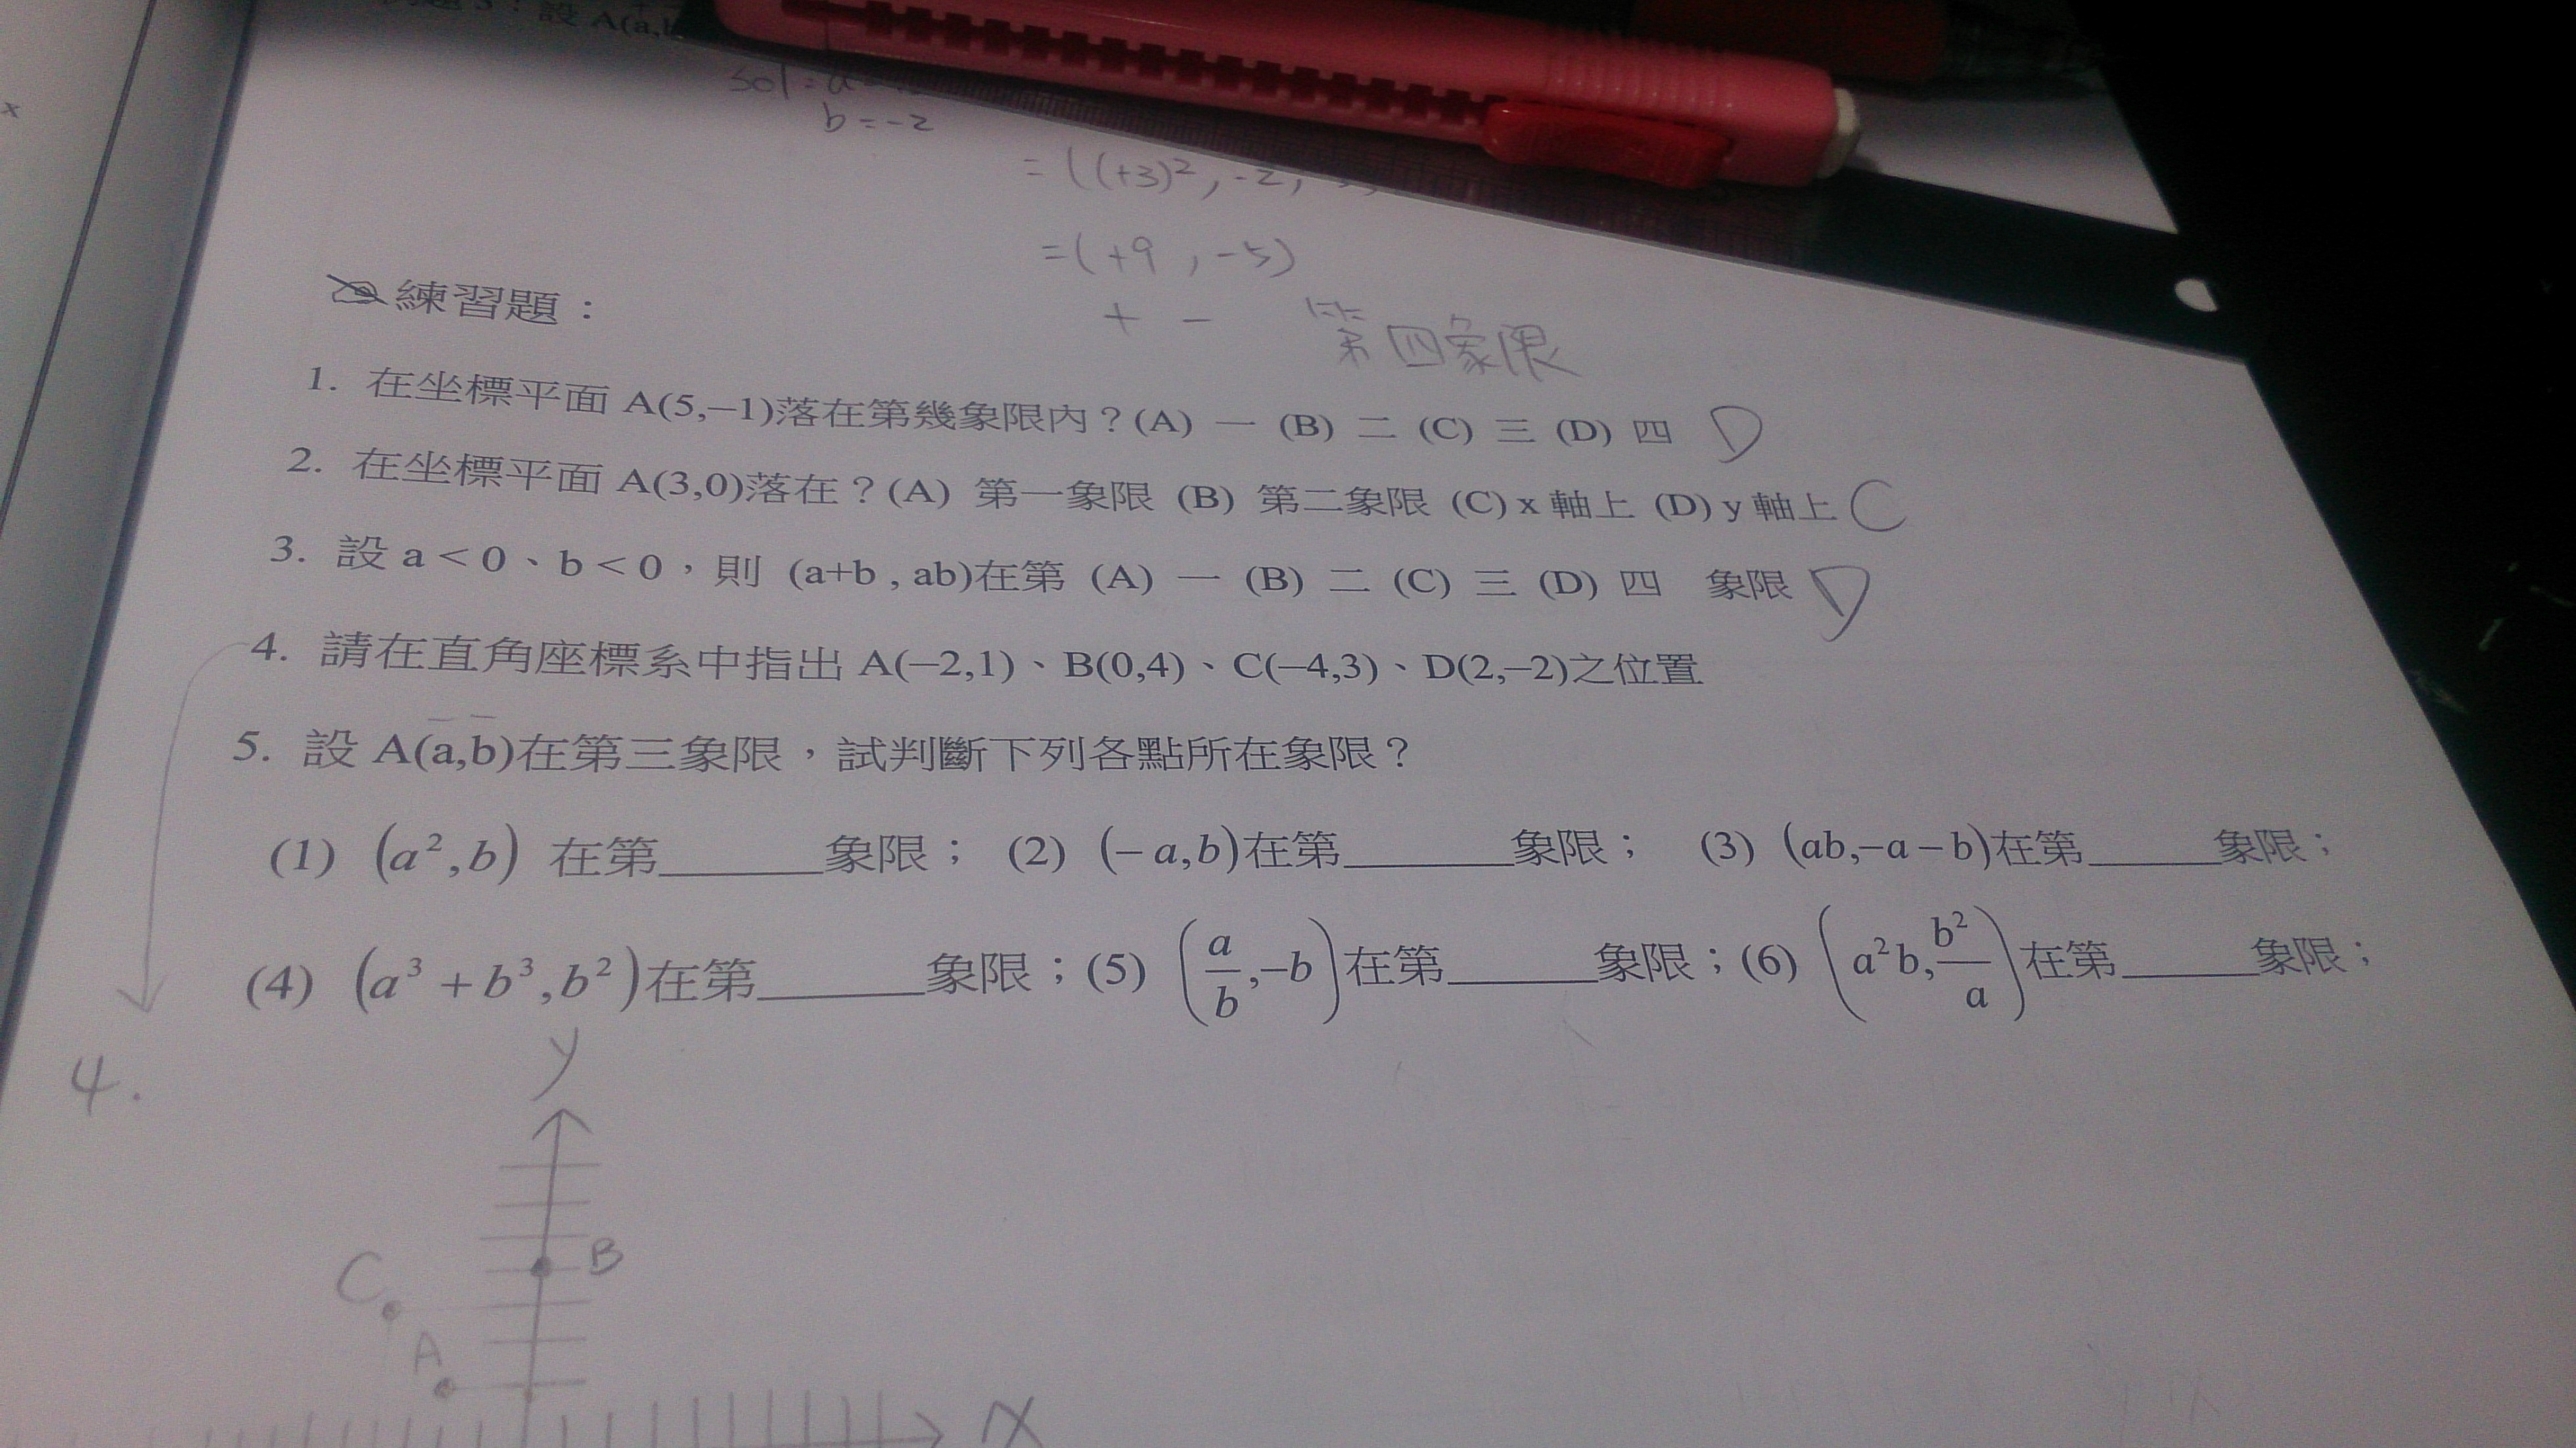 設 A(a,b
sol = a
b = -2
= ((+3)², -2,
= (+9 , -5)
+ - 第四象限
練習題：
1. 在坐標平面 A(5,−1)落在第幾象限內？(A) 一 (B) 二 (C) 三 (D) 四 D
2. 在坐標平面 A(3,0)落在？(A) 第一象限 (B) 第二象限 (C) x 軸上 (D) y 軸上 C
3. 設 a < 0、b < 0，則 (a+b , ab)在第 (A) 一 (B) 二 (C) 三 (D) 四 象限 D
4. 請在直角座標系中指出 A(−2,1)、B(0,4)、C(−4,3)、D(2,−2)之位置
5. 設 A(a,b)在第三象限，試判斷下列各點所在象限？
(1) (a²,b) 在第______象限； (2) (−a,b)在第______象限； (3) (ab,−a−b)在第______象限；
(4) (a³+b³,b²)在第______象限；(5) (a/b,−b)在第______象限；(6) (a²b,b²/a)在第______象限；
4.
y
B
C
A
x
x